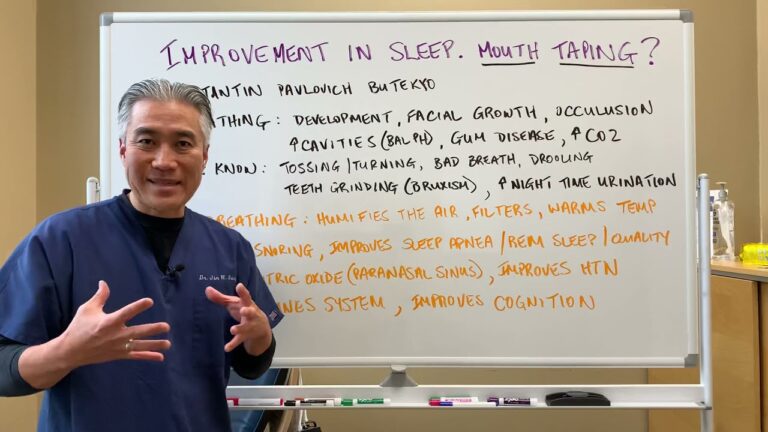 IMPROVEMENT IN SLEEP. MOUTH TAPING?
TANTIN PAVLOVICH BUTEKYO
THING: DEVELOPMENT, FACIAL GROWTH, OCCULUSION
↑CAVITIES (BALPH), GUM DISEASE, ↑CO2
KNOW: TOSSING/TURNING, BAD BREATH, DROOLING
TEETH GRINDING (BRUXISM), ↑NIGHT TIME URINATION
BREATHING: HUMIFIES THE AIR, FILTERS, WARMS TEMP
SNORING, IMPROVES SLEEP APNEA/REM SLEEP/QUALITY
TRIC OXIDE (PARANASAL SINUS), IMPROVES HTN
INES SYSTEM, IMPROVES COGNITION